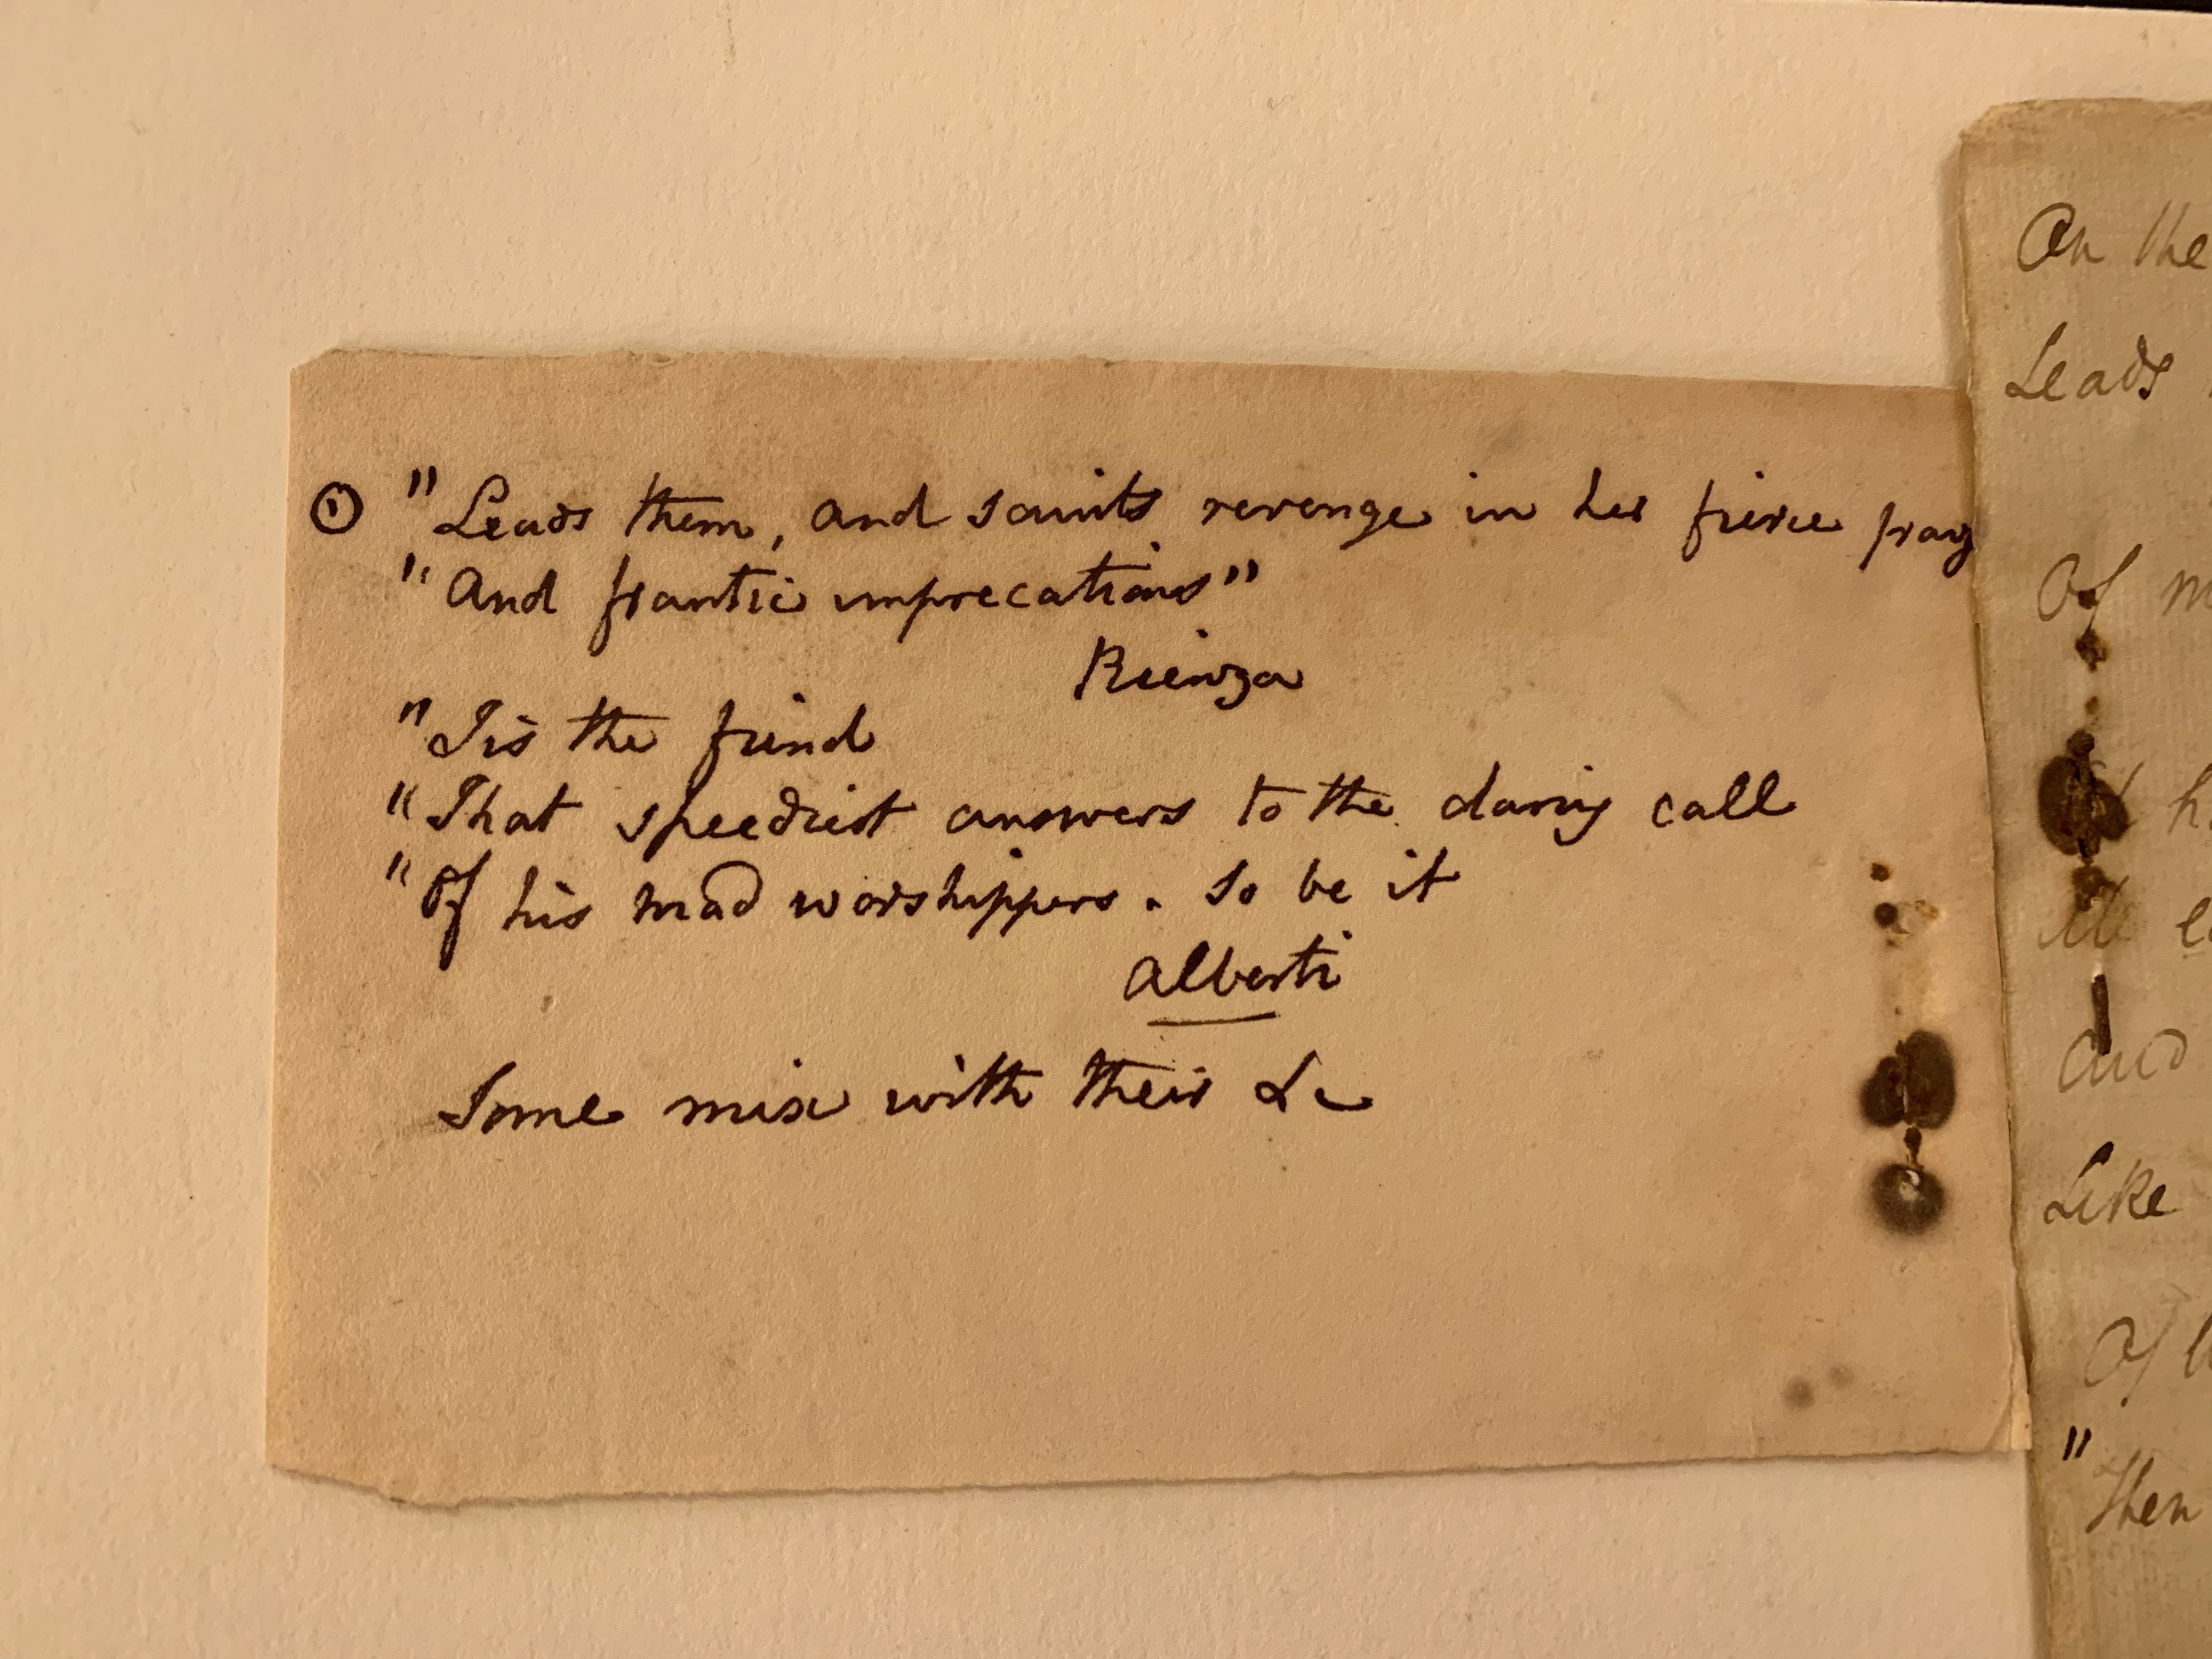 ① "Leads them, and saints revenge in her fierce pray
"And frantic imprecations"
Rienza
"Tis the fiend
"That speediest answers to the daring call
"Of his mad worshippers. So be it
Alberti
Some mix with their &c
On the
Leads
Of
and
Like
Of
"Then